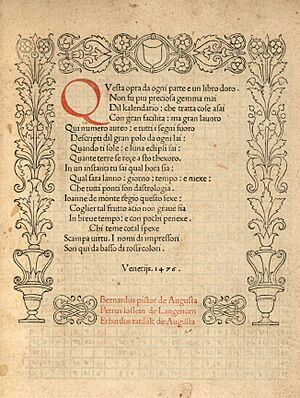 Questa opra da ogni parte e un libro doro.
Non fu piu preciosa gemma mai
Dil kalendario: che tratta cose asai
Con gran facilita: ma gran lauoro
Qui numero aureo: e tutti i segni fuoro
Descripti dil gran polo da ogni lai:
Quando il sole: e luna eclipsi fai:
Quante terre se rege a sto thexoro.
In un instanti tu sai qual hora sia:
Qual sara lanno: giorno: tempo: e mexe:
Che tutti ponti son dastrologia.
Ioanne de monte regio questo fexe:
Coglier tal frutto acio non graue sia
In breue tempo: e con pochi penexe.
Chi teme cotal spexe
Scampa uirtu. I nomi di impressori
Son qui da basso di rossi colori.
Venetijs. 1476.
Bernardus pictor de Augusta
Petrus loslein de Langencen
Erhardus ratdolt de Augusta